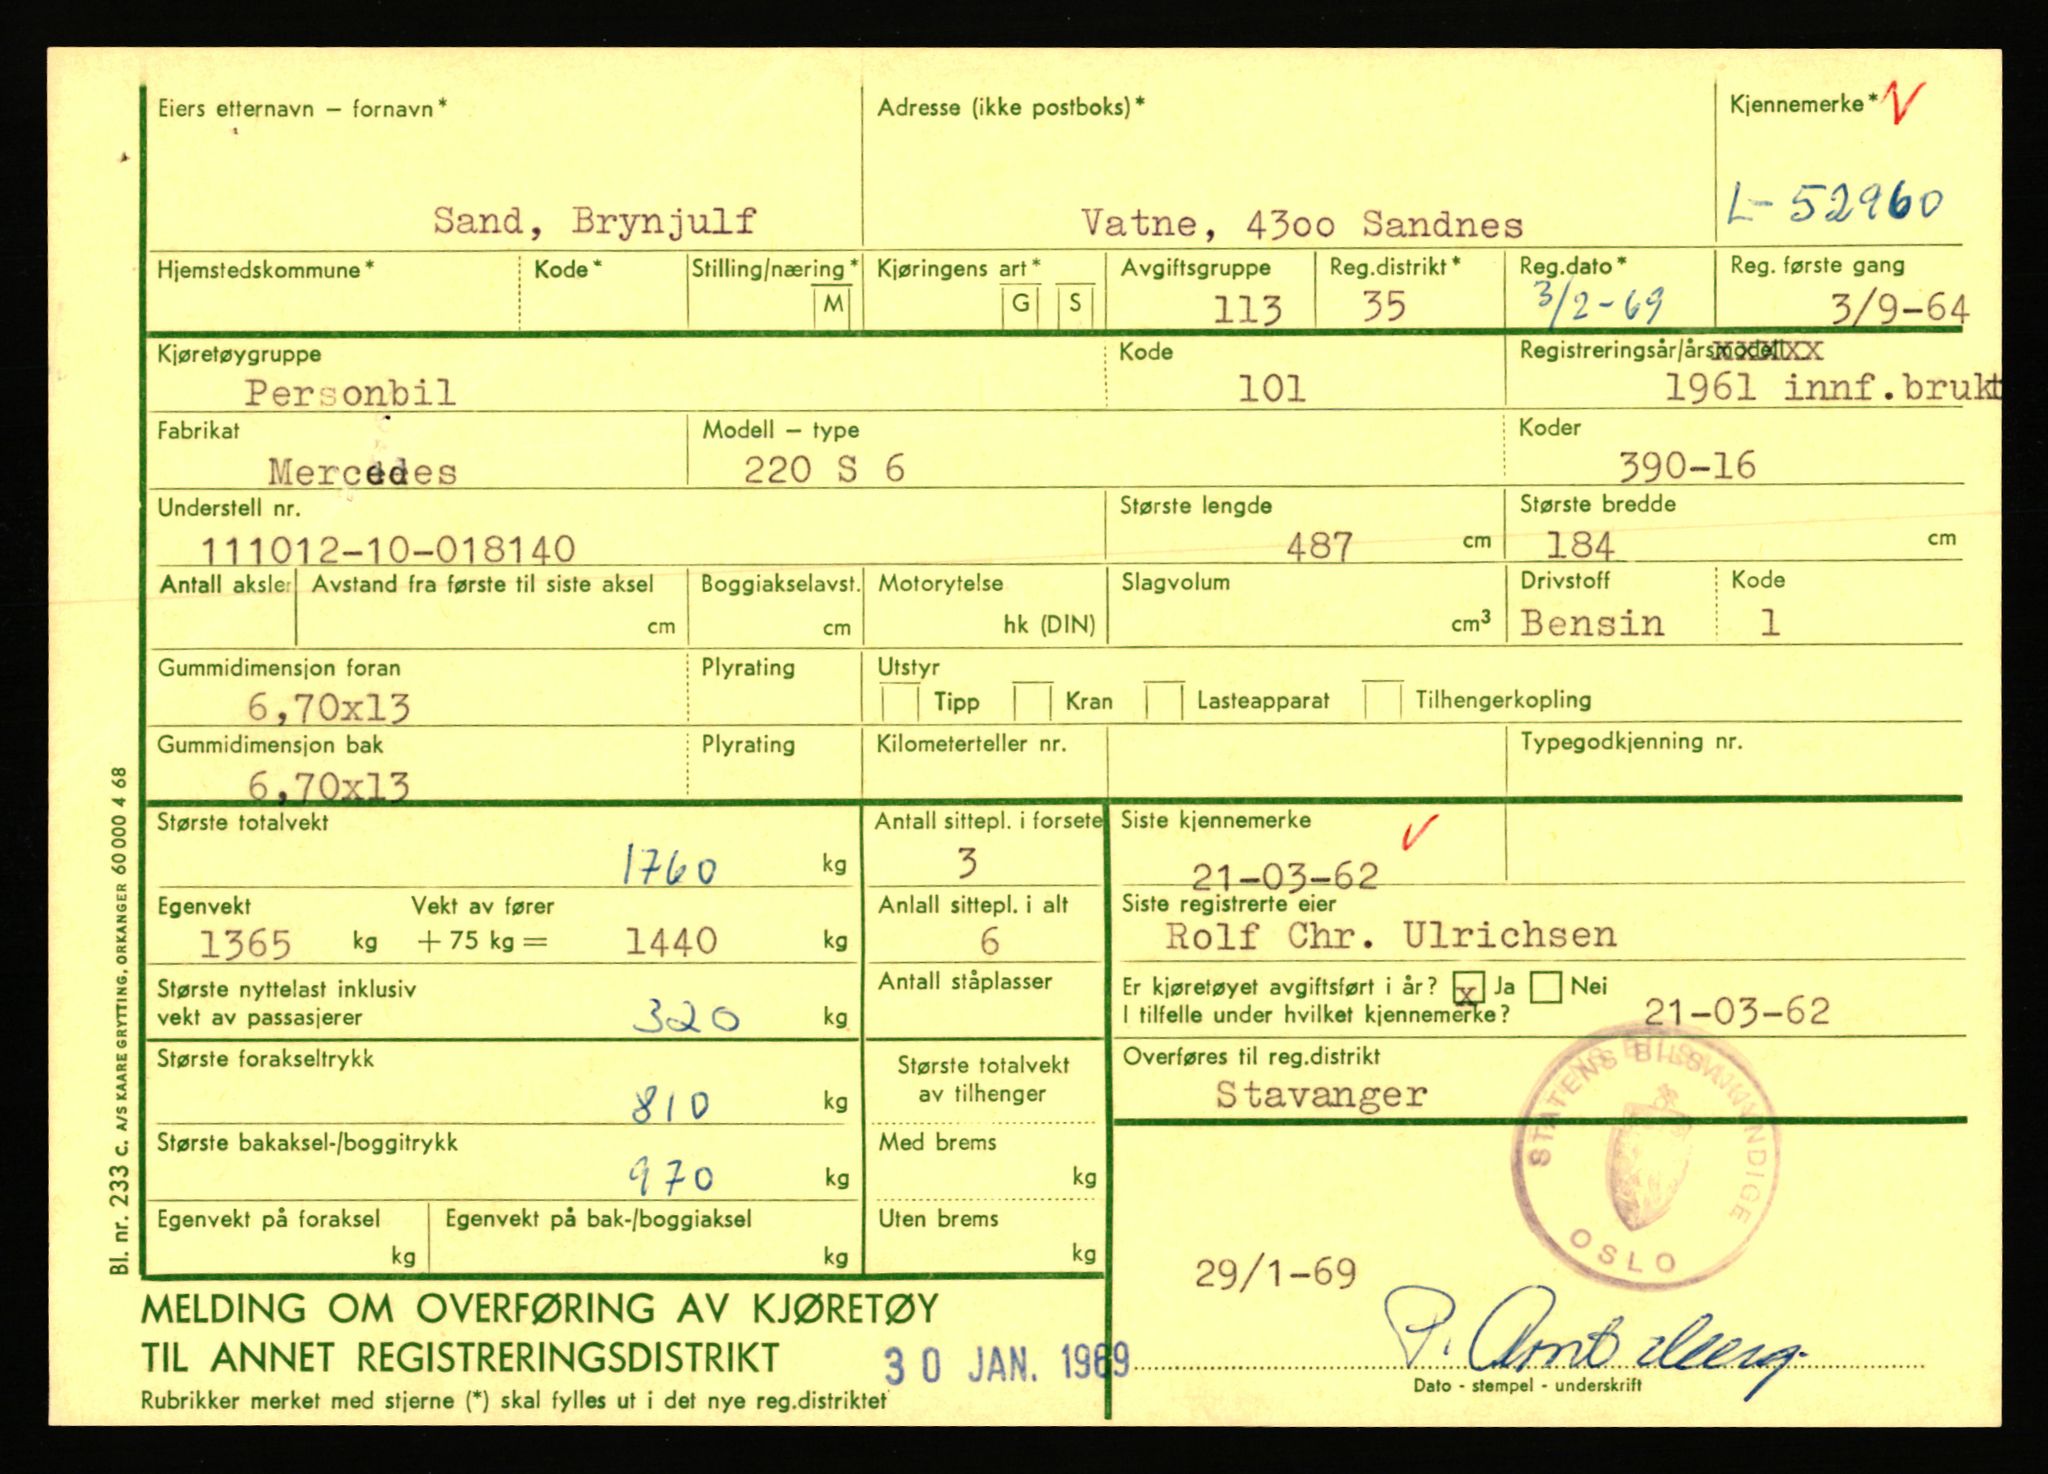 Eiers etternavn – fornavn* Adresse (ikke postboks)* Kjennemerke* V
Sand, Brynjulf Vatne, 43oo Sandnes L-52960
Hjemstedskommune* Kode* Stilling/næring* M Kjøringens art* G S Avgiftsgruppe Reg.distrikt* Reg.dato* Reg. første gang
113 35 3/2-69 3/9-64
Kjøretøygruppe Kode Registreringsår/årsmodell
Personbil 101 1961 innf.brukt
Fabrikat Modell – type Koder
Mercedes 220 S 6 390-16
Understell nr. Største lengde Største bredde
111012-10-018140 487 cm 184 cm
Antall aksler Avstand fra første til siste aksel Boggiakselavst. Motorytelse Slagvolum Drivstoff Kode
cm cm hk (DIN) cm3 Bensin 1
Gummidimensjon foran Plyrating Utstyr
6,70x13 Tipp Kran Lasteapparat Tilhengerkopling
Gummidimensjon bak Plyrating Kilometerteller nr. Typegodkjenning nr.
6,70x13
Største totalvekt Antall sittepl. i forsete Siste kjennemerke
1760 kg 3 21-03-62
Egenvekt Vekt av fører Anlall sittepl. i alt Siste registrerte eier
1365 kg + 75 kg = 1440 kg 6 Rolf Chr. Ulrichsen
Største nyttelast inklusiv Antall ståplasser Er kjøretøyet avgiftsført i år? x Ja Nei
vekt av passasjerer 320 kg I tilfelle under hvilket kjennemerke? 21-03-62
Største forakseltrykk Største totalvekt Overføres til reg.distrikt
810 kg av tilhenger Stavanger
Største bakaksel-/boggitrykk Med brems
970 kg kg
STATENS BILSAKKYNDIGE OSLO
Egenvekt på foraksel Egenvekt på bak-/boggiaksel Uten brems
kg kg kg
29/1-69
MELDING OM OVERFØRING AV KJØRETØY
TIL ANNET REGISTRERINGSDISTRIKT 30 JAN. 1969
Dato - stempel - underskrift
Rubrikker merket med stjerne (*) skal fylles ut i det nye reg.distriktet
Bl. nr. 233 c. A/S KAARE GRYTTING, ORKANGER 60 000 4 68